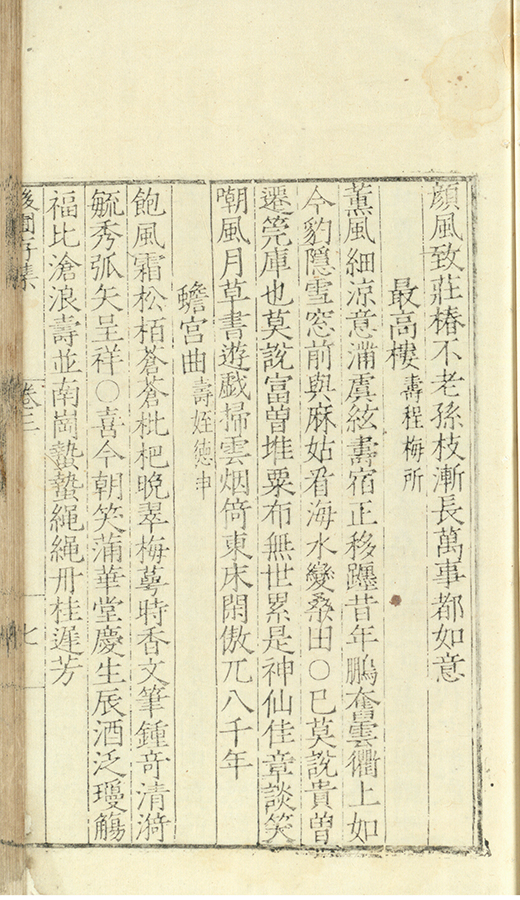 顔風致莊椿不老孫枝漸長萬事都如意
最高樓壽程梅所
薰風細涼意滿虞絃壽宿正移躔昔年鵬奮雲衢上如
今豹隱雪窓前與麻姑看海水變桑田〇巳莫說貴曽
遷筦庫也莫說富曽堆粟布無世累是神仙佳章談笑
嘲風月草書遊戯掃雲烟倚東床閑傲兀八千年
蟾宫曲壽姪德申
飽風霜松栢蒼蒼枇杷晚翠梅蕚時香文筆鍾竒清漪
毓秀弧矢呈祥〇喜今朝笑蒲華堂慶生辰酒泛瓊觴
福比滄浪壽並南崗蟄蟄繩繩丹桂遲芳
後圃存集
卷三
七